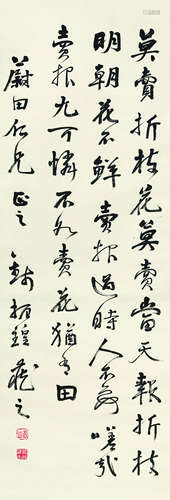 莫賣折枝花莫賣當天報折枝
明朝花不鮮賣報過時人不要嗟哉
賣報尤可憐不如賣花猶有田
蔚田仁兄正之 錢振鍠